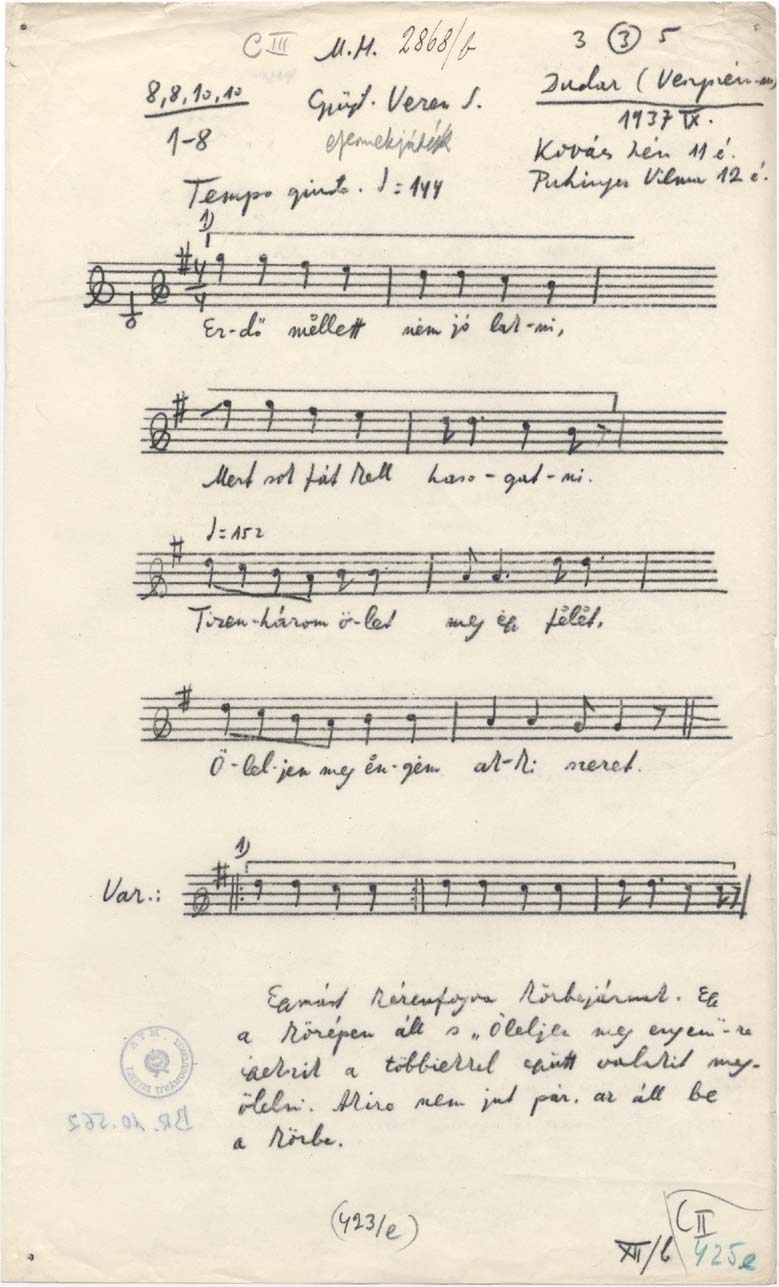 C III M.H. 2868/b 3 3 5
8,8,10,10 Gyűjt. Veress S. Dudar (Veszprém m)
1-8 gyermekjáték 1937 IX.
Kovács Lén 11 é.
Tempo giusto. ♩=144 Puhinger Vilma 12 é.
1)
4/4
Er-dő mëllett nem jó lak-ni,
Mert sok fát këll haso-gat-ni.
♩=152
Tizen-három ö-let meg ëgy félët,
Ö-lel-jen meg ën-gëm ak-ki szeret.
1)
Var.:
Egymást kézenfogva körbejárnak. Egy
a középen áll s „Öleljen meg engem"-re
igyekszik a többiekkel együtt valakit meg-
ölelni. Akire nem jut pár, az áll be
a körbe.
BR. 10.562
(423/e)
C II
XII/b 425e